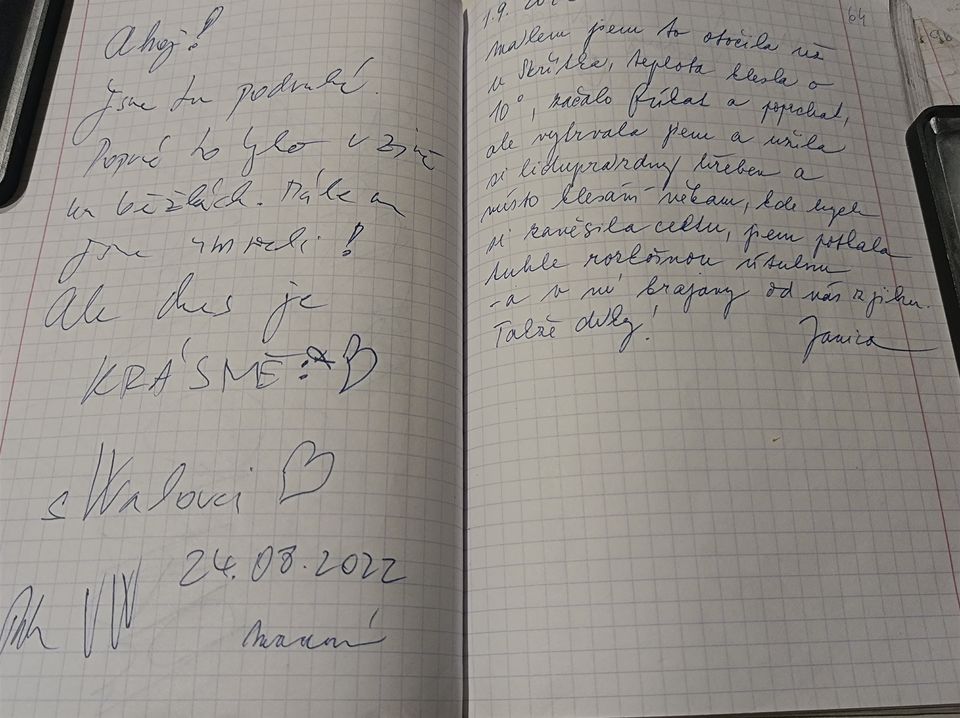 Ahoj!
Jsme tu podruhé.
Poprvé to bylo v zimě
na běžkách. Málem
jsme umrzli!
Ale dnes je
KRÁSNĚ
sWalovci
24.08.2022
1.9.
64
málem jsem to otočila už
v Skřítka, teplota klesla o
10°, začalo fúkat a poprchat,
ale vytrvala jsem a užila
si liduprázdný hřeben a
místo klesání někam, kde bych
si zavěsila celtu, jsem potkala
tuhle rozkošnou útulnu
-a v ní krajany od nás z jihu.
Takže díky!
Janica